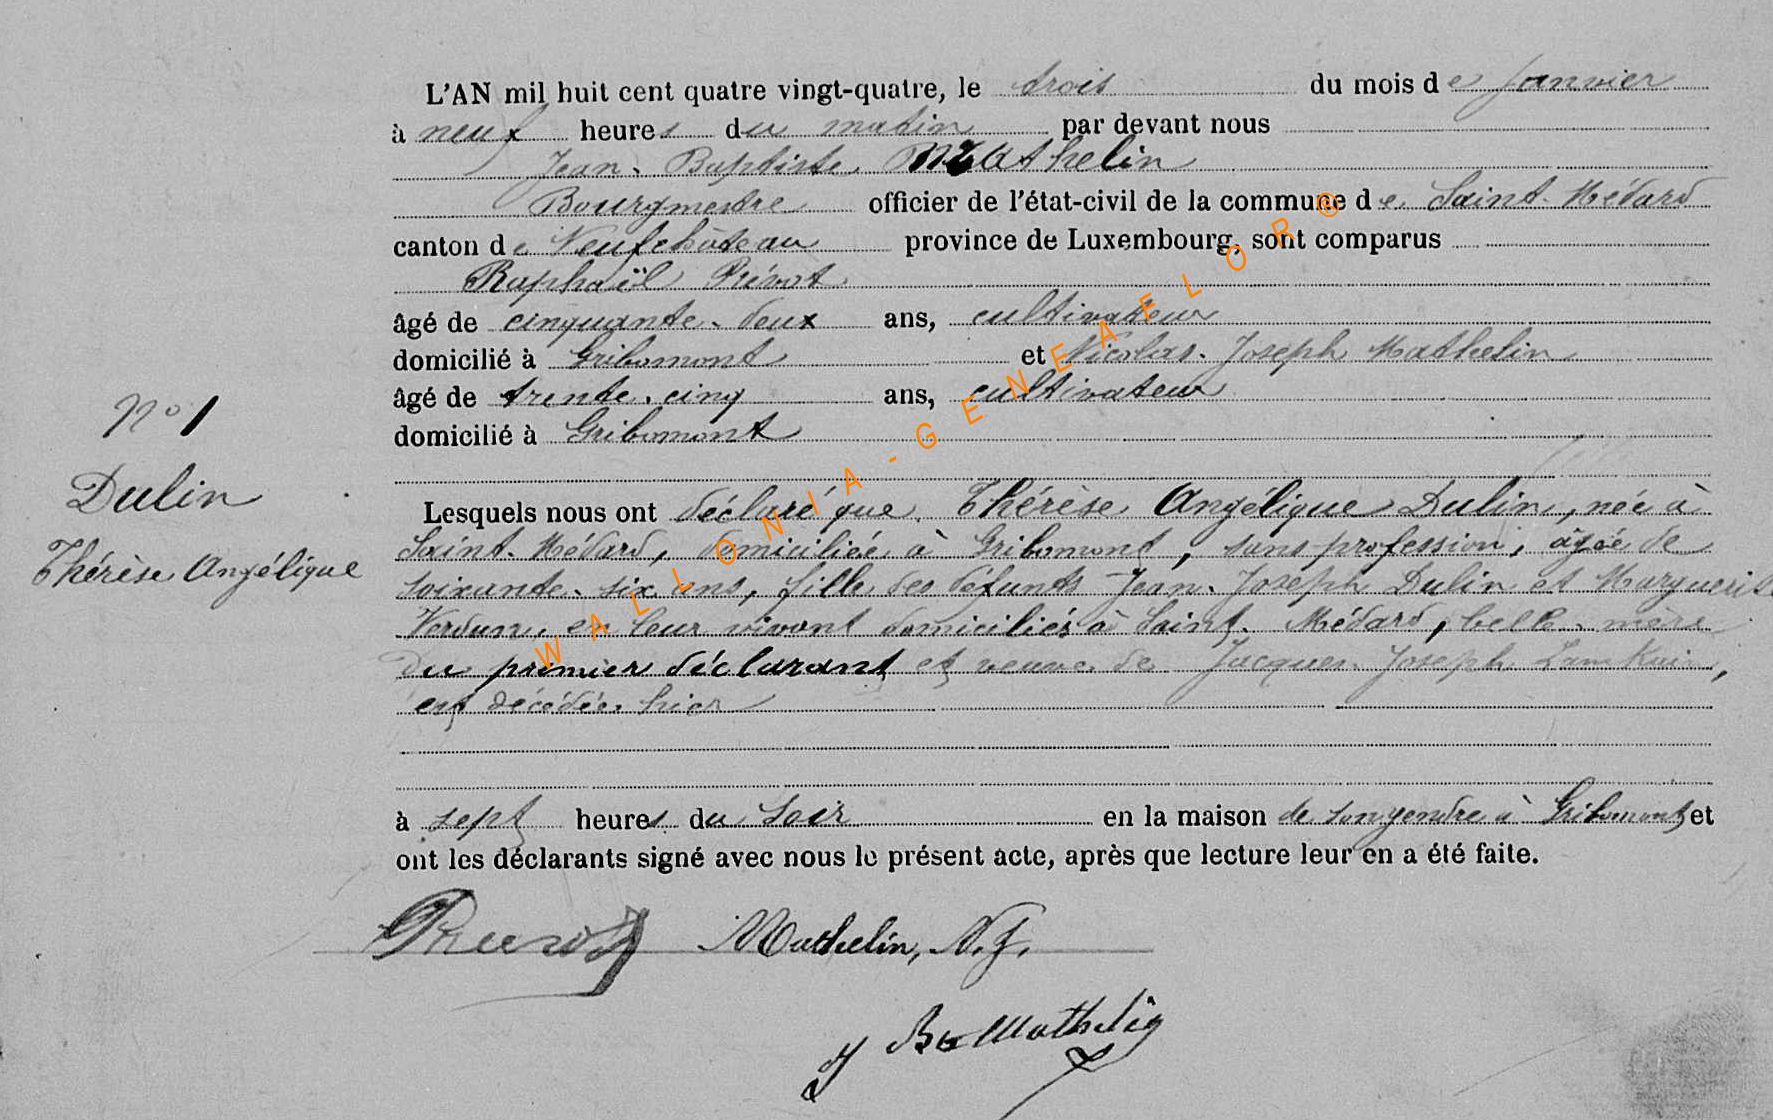 L'AN mil huit cent quatre vingt-quatre, le trois du mois de Janvier
à neuf heures du matin par devant nous
Jean-Baptiste Mathelin
Bourgmestre officier de l'état-civil de la commune de Saint-Médard
canton de Neufchâteau province de Luxembourg, sont comparus
Raphaël Prévot
âgé de cinquante-deux ans, cultivateur
domicilié à Gribomont et Nicolas-Joseph Mathelin
âgé de trente-cinq ans, cultivateur
domicilié à Gribomont
N° 1
Dulin
Thérèse Angélique
Lesquels nous ont déclaré que Thérèse Angélique Dulin, née à
Saint-Médard, domiciliée à Gribomont, sans profession, âgée de
soixante-six ans, fille des défunts Jean-Joseph Dulin et Marguerite
Verdun, en leur vivant domiciliés à Saint-Médard, belle-mère
du premier déclarant et veuve de Jacques Joseph
est décédée hier
à sept heures du soir en la maison de son gendre à Gribomont et
ont les déclarants signé avec nous le présent acte, après que lecture leur en a été faite.
Prévot Mathelin, N. J.
J Bte Mathelin
WALLONIA-GENEAELOR®